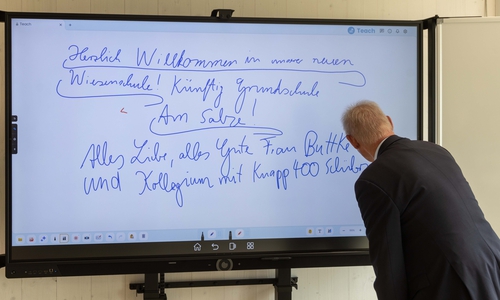 Teach
Teach
Herzlich Willkommen in unserer neuen
Wiesenschule! Künftig Grundschule
Am Salze!
Alles Liebe, alles Gute Frau Buttke
und Kollegium mit knapp 400